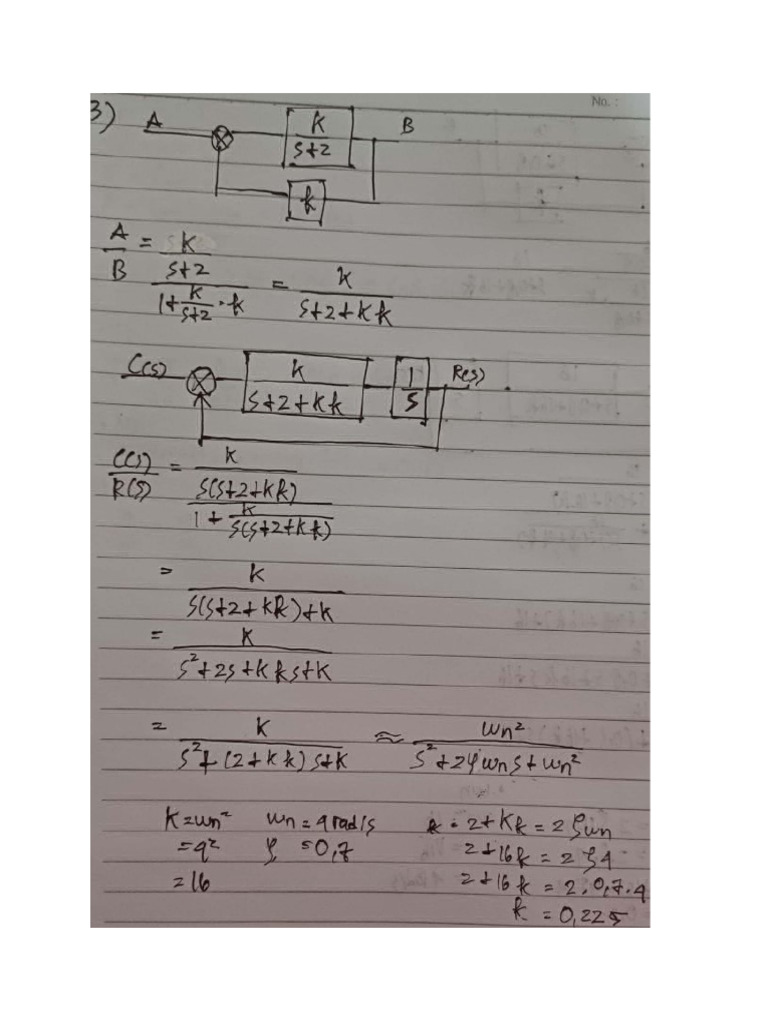 No. :
3) A K/(s+2) B
k
A/B = (K/(s+2)) / (1 + K/(s+2) · k) = K/(s+2+Kk)
C(s) K/(s+2+Kk) 1/s R(s)
C(s)/R(s) = (K/(s(s+2+Kk))) / (1 + K/(s(s+2+Kk)))
= K/(s(s+2+Kk)+K)
= K/(s²+2s+Kks+K)
= K/(s²+(2+Kk)s+K) ≈ ωn²/(s²+2ζωns+ωn²)
K=ωn² ωn=4rad/s 2+Kk=2ζωn
=4² ζ=0,7 2+16k=2ζ4
=16 2+16k=2.0,7.4
k=0,225